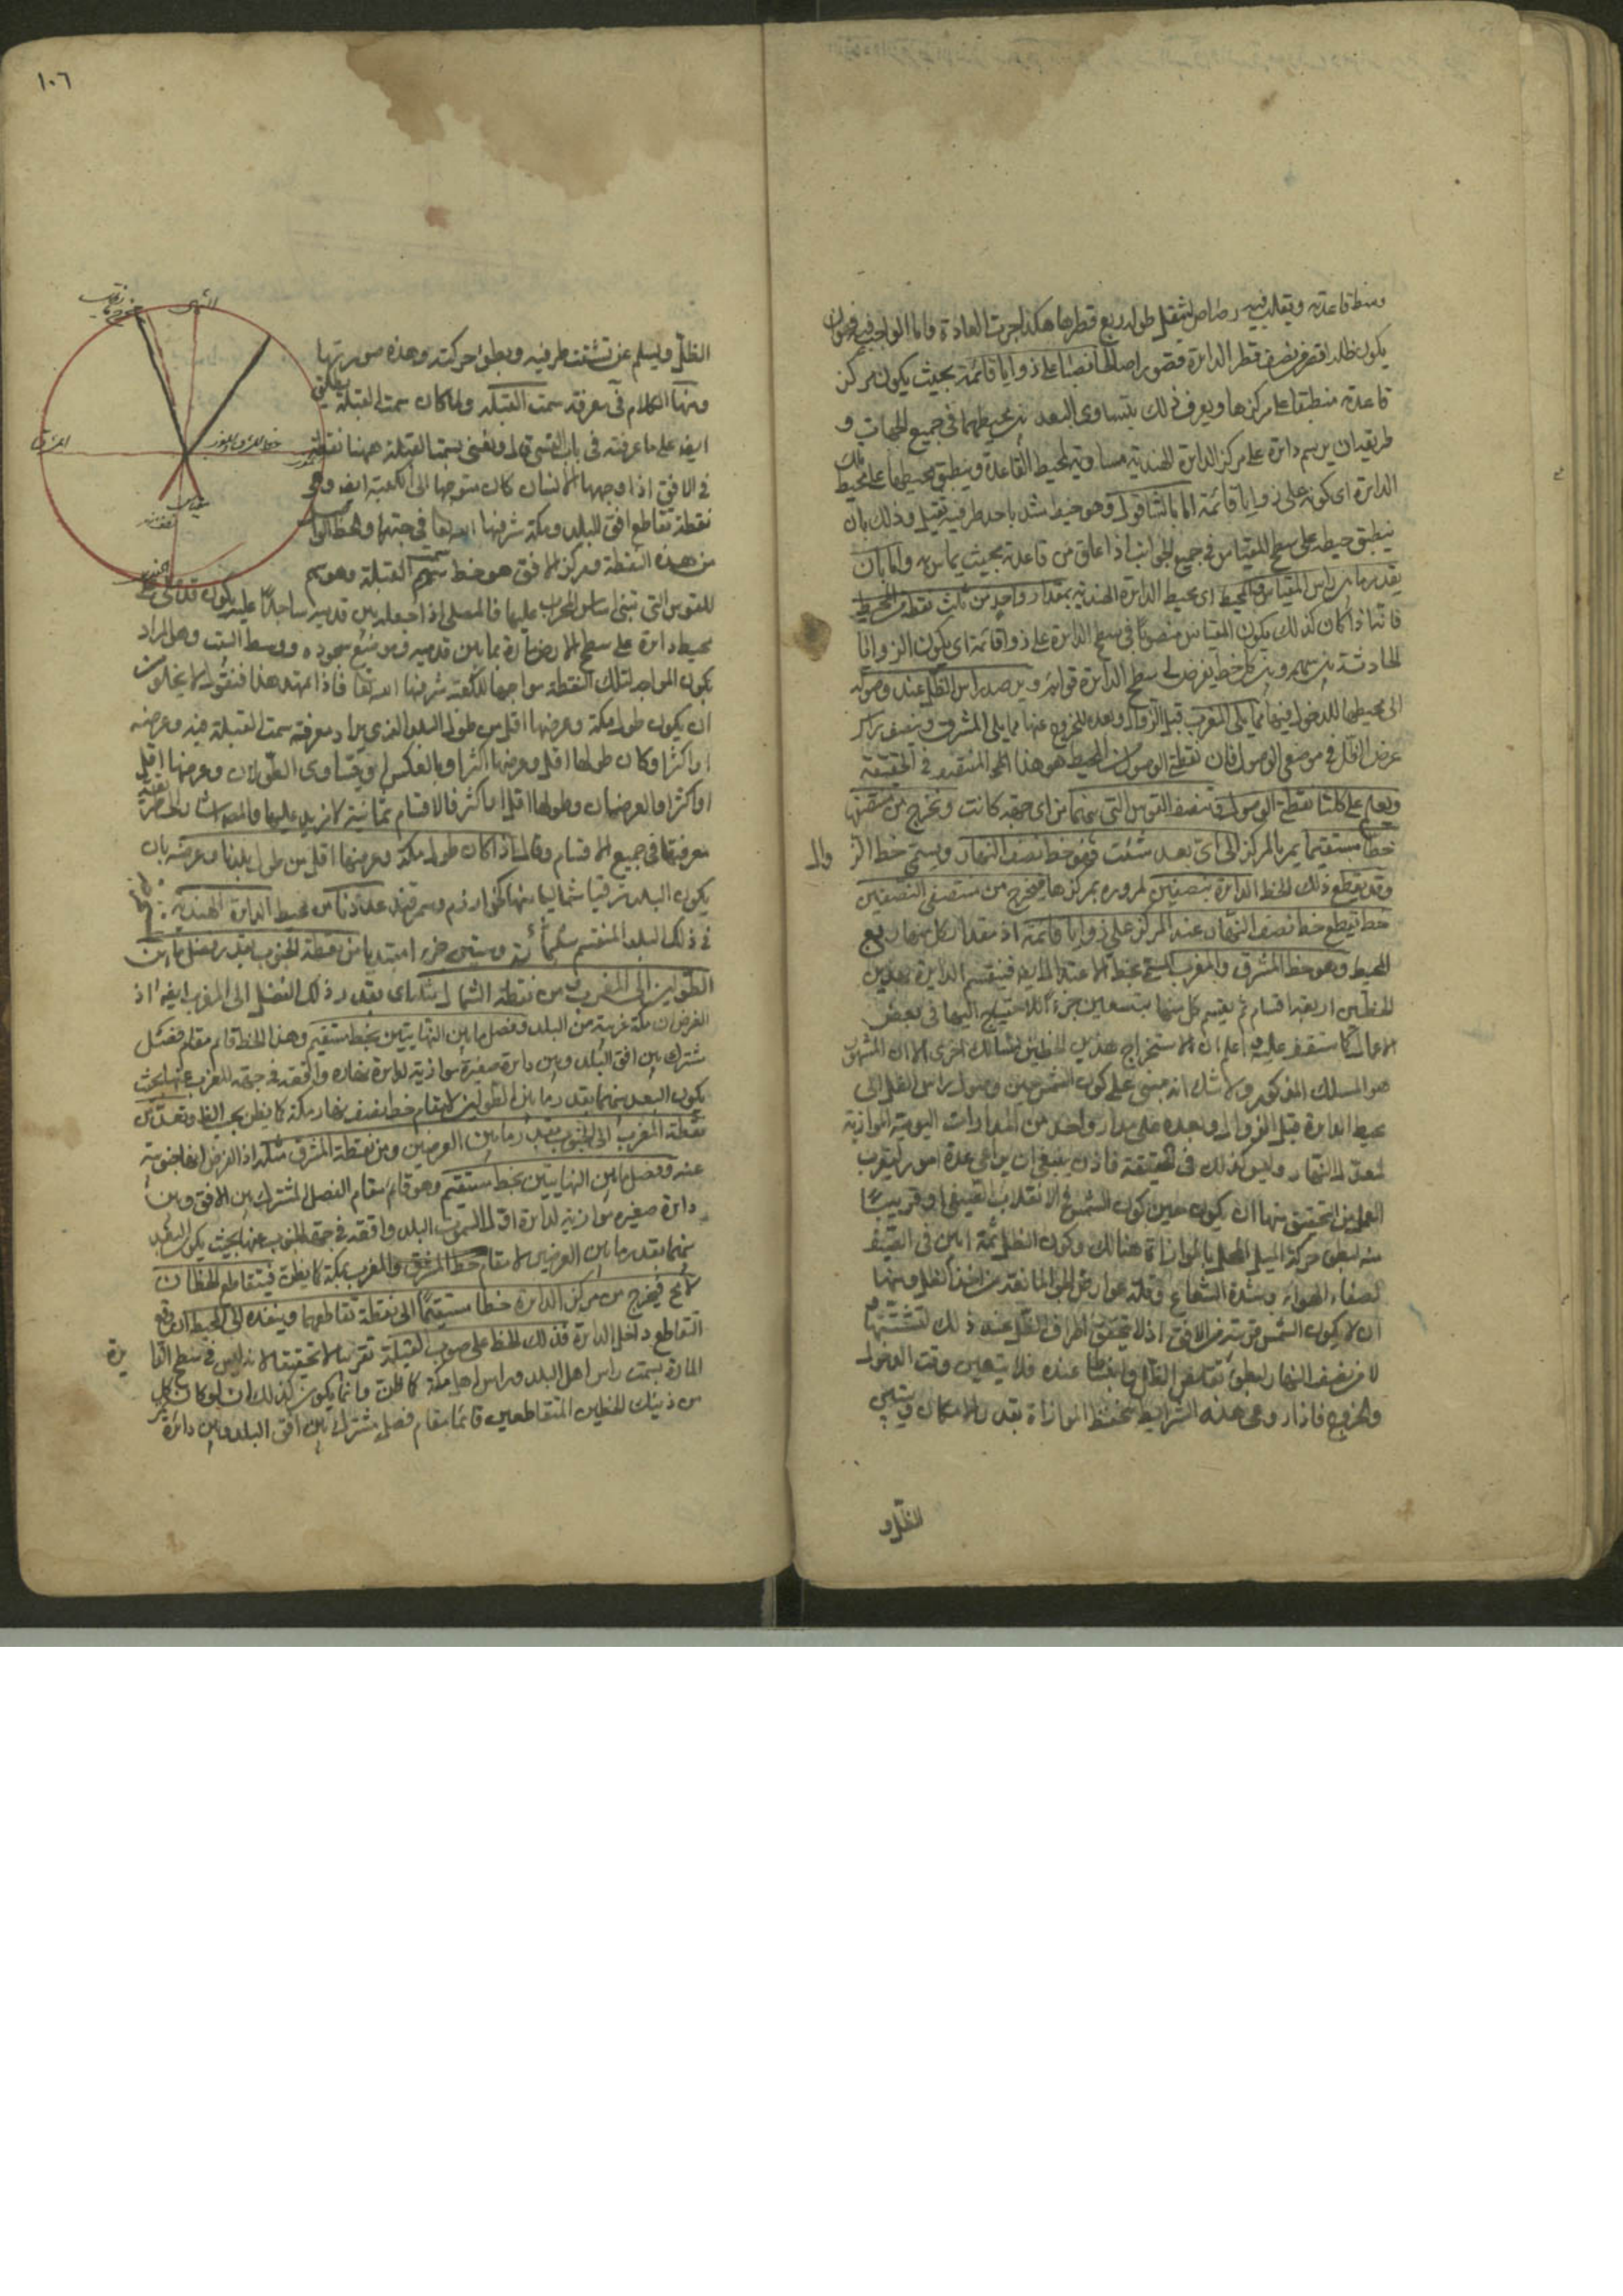 وسط قاعدته ويقلب فيه رصاص ليثقل طوله ربع قطرها هكذا جرت العادة واما الواجب فيه فهو ان
يكون ظله اقصر من نصف قطر الدائرة منصوبا على زوايا قائمة بحيث يكون مركز
قاعدته منطبقا على مركزها ويعرف ذلك بتساوى البعد بين محيطيهما فى جميع الجهات و
طريقه ان يرسم دائرة على مركز الدائرة الهندية مساوية لمحيط القاعدة وينطبق محيطها على محيط تلك
الدائرة اى كونه على زوايا قائمة اما بالشاقول وهو خيط شد باحد طرفيه ثقيل وذلك بان
ينطبق خيطه على سطح المقياس فى جميع الجوانب اذا علق من قاعدته بحيث يماسه واما بان
يقدر ما بين راس المقياس والمحيط اى محيط الدائرة الهندية بمقدار واحد من ثلث نقط من المحيط
فانه اذا كان كذلك يكون المقياس منصوبا فى سطح الدائرة على زوايا قائمة اى يكون الزوايا
الحادثة بين سهمه وبين كل خط يفرض فى سطح الدائرة قوائم ويرصد راس الظل عند وصوله
الى محيطها للدخول فيها مما يلى المغرب قبل الزوال وبعده للخروج عنها مما يلى المشرق وينصف
عرض الظل فى موضعى الوصول فان نقطة الوصول من المحيط هو هذا المنتصف فى الحقيقة
ويعلم على كلتا نقطتى الوصول وتنصف القوس التى بينهما من اى جهة كانت ويخرج من منتصفها
خطا مستقيما يمر بالمركز الى اى بعد شئت فهو خط نصف النهار ويسمى خط الز
وال
وقد يقطع ذلك الخط الدائرة بنصفين لمروره بمركزها فيخرج من منتصفى النصفين
خط يقطع خط نصف النهار عند المركز على زوايا قائمة اذ مقدار كل منهما ربع
المحيط وهو خط المشرق والمغرب المسمى بخط الاعتدال ايضا فينقسم الدائرة بهذين
الخطين اربعة اقسام ثم يقسم كل منها بتسعين جزءا للاحتياج اليها فى بعض
الاعمال كما ستقف عليه واعلم ان لاستخراج هذين الخطين مسالك اخرى الا ان المشهور
هو المسلك المذكور ولا شك انه مبنى على كون الشمس حين وصول راس الظل الى
محيط الدائرة قبل الزوال وبعده على مدار واحد من المدارات اليومية الموازية
لمعدل النهار وليس كذلك فى الحقيقة فاذن ينبغى ان يراعى عدة امور ليقرب
العمل من التحقيق منها ان يكون حين كون الشمس فى الانقلاب الصيفى او قريبا
منه لبطؤ حركة الميل المخل بالموازاة هنالك وكون الظل ثمة ابين فى الصيف
لصفاء الهواء وشدة الشعاع وقلة عوارض الجو المانعة من اخذ الظل ومنها
ان لا يكون الشمس قريبة من الافق اذ لا يتحقق اطراف الظل عند ذلك لتشتتها
لا من نصف النهار لبطؤ تقلص الظل وانبساطه عنده فلا يتعين وقت الدخول
والخروج فاذا روعى هذه الشرائط تحفظ الموازاة بقدر الامكان ويتبين
الظل و
١٠٦
الشمال
المشرق
خط المشرق والمغرب
مقياس
الجنوب
الظل ويسلم عن تشتت طرفيه وبطؤ حركته وهذه صورتها
ومنها الكلام فى معرفة سمت القبلة ولما كان سمت القبلة يطلق
ايضا على ما عرفته فى باب القسى قال ونعنى بسمت القبلة ههنا نقطة
فى الافق اذا وجهها الانسان كان متوجها الى الكعبة ايضا وهو
نقطة تقاطع افق البلد ومكة شرفها الله تعالى فى جهتها والخط الواصل
من هذه النقطة ومركز الافق هو خط سمت القبلة وهو سهم
للقوس التى تبنى اساس المحراب عليها فالمصلى اذا جعله بين قدميه ساجدا عليه يكون قد صلى على
محيط دائرة على سطح الارض مارة بما بين قدميه وموضع سجوده ووسط البيت وهو المراد
بكون المواجه لتلك النقطة مواجها للكعبة شرفها الله تعالى فاذا تمهد هذا فنقول لا يخلو من
ان يكون طول مكة وعرضها اقل من طول البلد الذى يراد معرفة سمت القبلة فيه وعرضه
او اكثر او كان طولها اقل وعرضها اكثر او بالعكس او يتساوى الطولان وعرضها اقل
او اكثر او العرضان وطولها اقل او اكثر فالاقسام ثمانية لا مزيد عليها والمصنف اشار الى
معرفتها فى جميع الاقسام وقال اذا كان طول مكة وعرضها اقل من طول بلدنا وعرضه بان
يكون البلد شرقيا شماليا منها كخوارزم وسمرقند عددنا من محيط الدائرة الهندية
فى ذلك البلد المنقسم بثلثمائة وستين جزء مبتديا من نقطة الجنوب بقدر فضل ما بين
الطولين الى المغرب ومن نقطة الشمال مثله اى بقدر ذلك الفضل الى المغرب ايضا اذ
الفرض ان مكة غربية من البلد ونصل ما بين النهايتين بخط مستقيم وهذا الخط قائم مقام فصل
مشترك بين افق البلد وبين دائرة صغيرة موازية لدائرة نصف نهاره واقعة فى جهة المغرب عنها بحيث
يكون البعد بينهما بقدر ما بين الطولين لا مقام خط نصف نهار مكة كما يظن بحسب الظاهر ونعد من
نقطة المغرب الى الجنوب بقدر ما بين العرضين ومن نقطة المشرق مثله اذ الفرض انها جنوبية
عنه ونصل ما بين النهايتين بخط مستقيم وهو قائم مقام الفصل المشترك بين الافق وبين
دائرة صغيرة موازية لدائرة اول السموت البلد واقعة فى جهة الجنوب عنها بحيث يكون البعد
بينهما بقدر ما بين العرضين لا مقام خط المشرق والمغرب بمكة كما يظن فيتقاطع الخطان
لا محالة فيخرج من مركز الدائرة خطا مستقيما الى نقطة تقاطعهما وينفذه الى المحيط ان وقع
التقاطع داخل الدائرة فذلك الخط على صوب القبلة تقريبا لا تحقيقا لانه ليس فى سطح الدا
ئرة
المارة بسمت راس اهل البلد وراس اهل مكة كما ظن وانما يكون كذلك ان لو كان كل
من ذينك الخطين المتقاطعين قائما مقام فصل مشترك بين افق البلد وبين دائرة